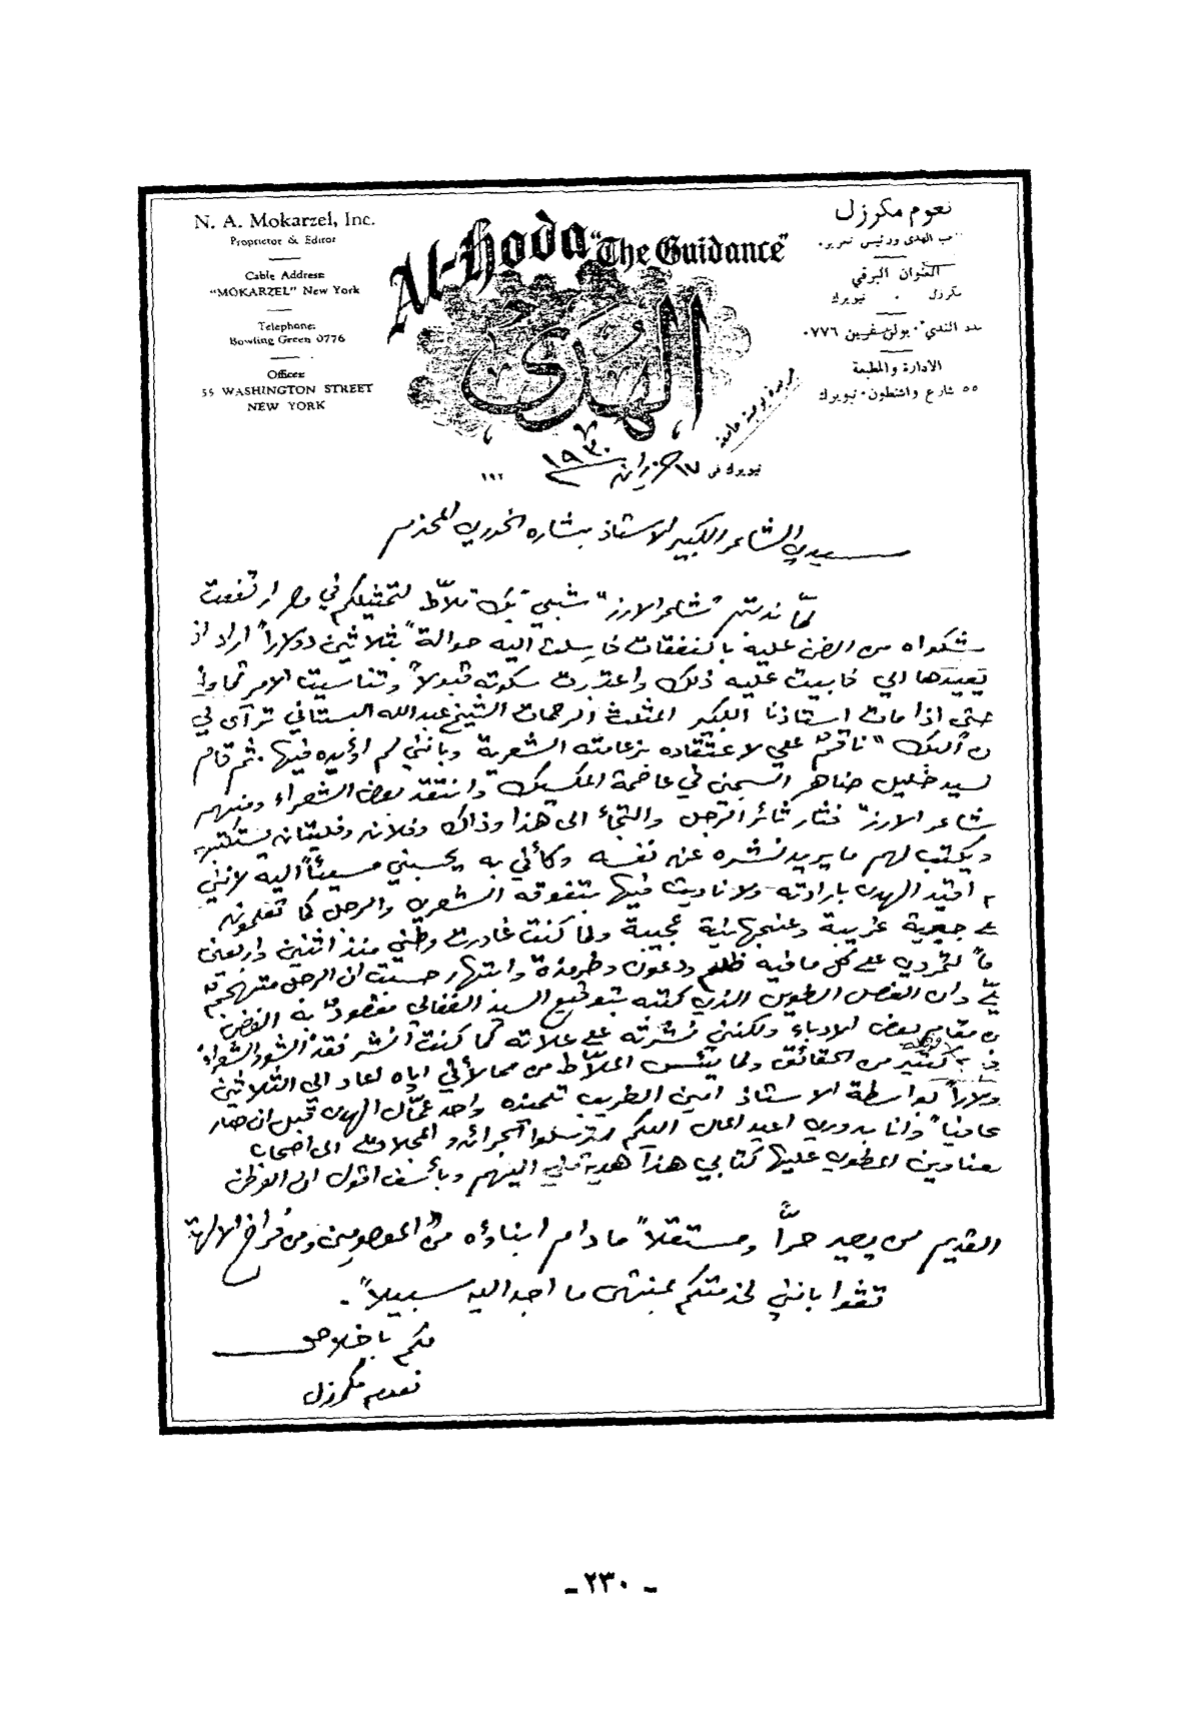 N. A. Mokarzel, Inc.
Proprietor & Editor
Cable Address:
"MOKARZEL" New York
Telephone:
Bowling Green 0776
Offices:
55 WASHINGTON STREET
NEW YORK
Al-Hoda "The Guidance"
الهدى
جريدة يومية جامعة
نعوم مكرزل
ـب الهدى ورئيس تحرير
العنوان البرقي
مكرزل . نيويرك
بولن غرين ٠٧٧٦
الادارة والمطبعة
٥٥ شارع واشنطون . نيويرك
نيويرك في ١٧ حزيران ١٩٣٠ ١٩٢
سيدي الشاعر الكبير الاستاذ بشاره الخوري المحترم
لما ندبتم "شاعر الارز" شبلي بك ملاّط لتمثيلكم في مصر ارتفعت
شكواه من الضن عليه بالنفقات فارسلت اليه حوالة بثلاثين دولاراً اراد ان
يعيدها الي فابيت عليه ذلك واعتبرت سكوته قبولاً وتناسيت الامر
حتى اذا مات استاذنا الكبير المثلث الرحمات الشيخ عبدالله البستاني ترآى لي
ن البك ناقم علي لاعتقاده بزعامته الشعرية وبانني لم اؤيده فيها . ثم قام
لسيد خليل ضاهر في عاصمة المكسيك وانتقد بعض الشعراء ومنهم
شاعر الارز" فثار ثائر الرجل والتجأ الى هذا وذاك وفلان وفليتان يستكتبهم
ويكتب لهم ما يريد نشره عن نفسه وكأني به يحسبني مسيئاً اليه لانني
اقيد الهدى بارادته ولا ناديت فيها بتفوقه الشعري والرجل كما تعلمون
غريبة وعنجهانية عجيبة ولما كنت غادرت وطني منذ اثنتين واربعين
ماً لتمردي على كل ما فيه ظلم وانتهار حسبت ان الرجل
وان الفصل الطويل الذي كتبه بتوقيع السيد مقصود به الغض
ن مقام بعض الادباء ولكنني نشرته على علاته كما كنت انشر
كثير من الحقائق ولما يئس الملاّط من ممالأتي اياه اعاد الي الثلاثين
ولاراً بواسطة الاستاذ امين الغريب تلميذه واحد عمّال الهدى قبل ان صار
وانا بدوري اعيد المال اليكم لترسلوا الجرائد والمجلات الى اصحاب
لعناوين المطوي عليها كتابي هذا هدية مني اليهم وبأسف اقول ان الوطن
القديم لن يصير حراً ومستقلاً ما دام ابناؤه من المعصومين ومن فراخ الالهة
ثقوا بانني لخدمتكم بمنتهى ما اجد اليه سبيلاً .
لكم باخلاص
نعوم مكرزل
- ٢٣٠ -